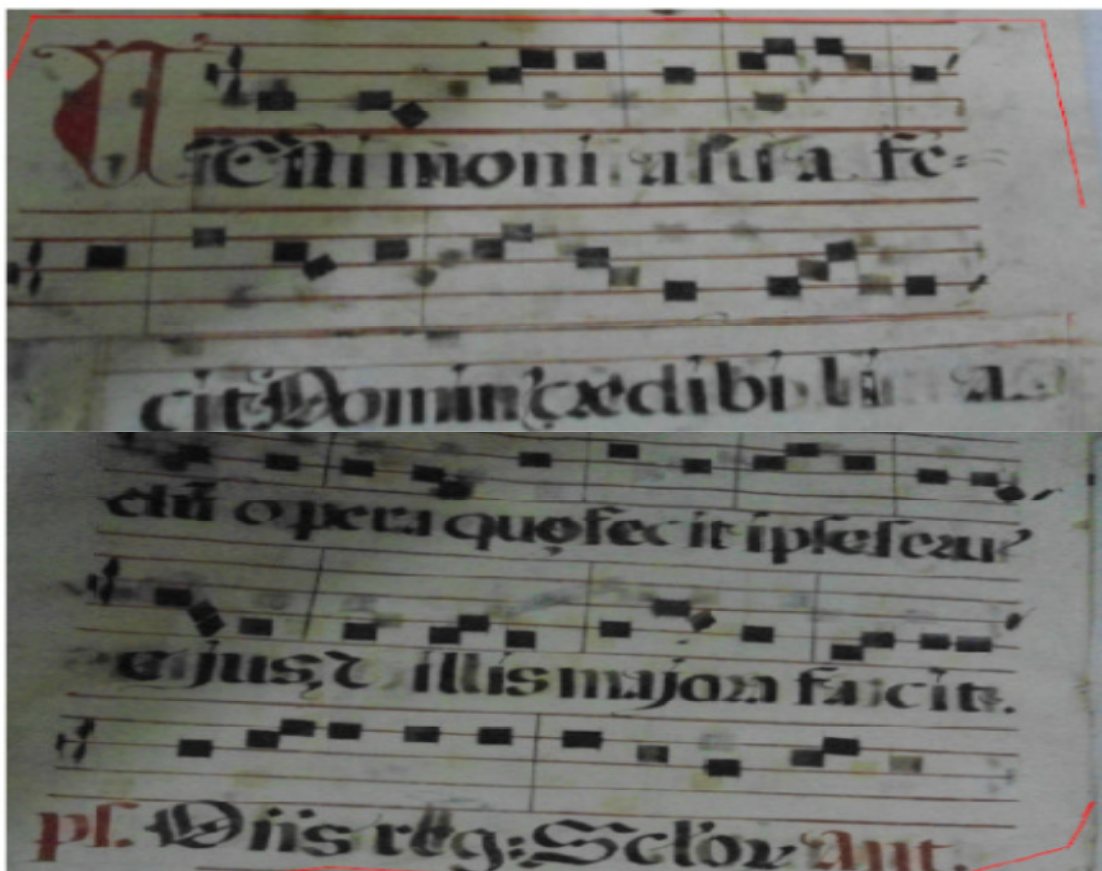 moni a ſu a fe=
cit Domin⁹ credibi li a
opera quę fecit ipſe ſeru⁹
ejus, ⁊ illis majora faciet.
pſ. Dñs reg: Sęclor Ant.